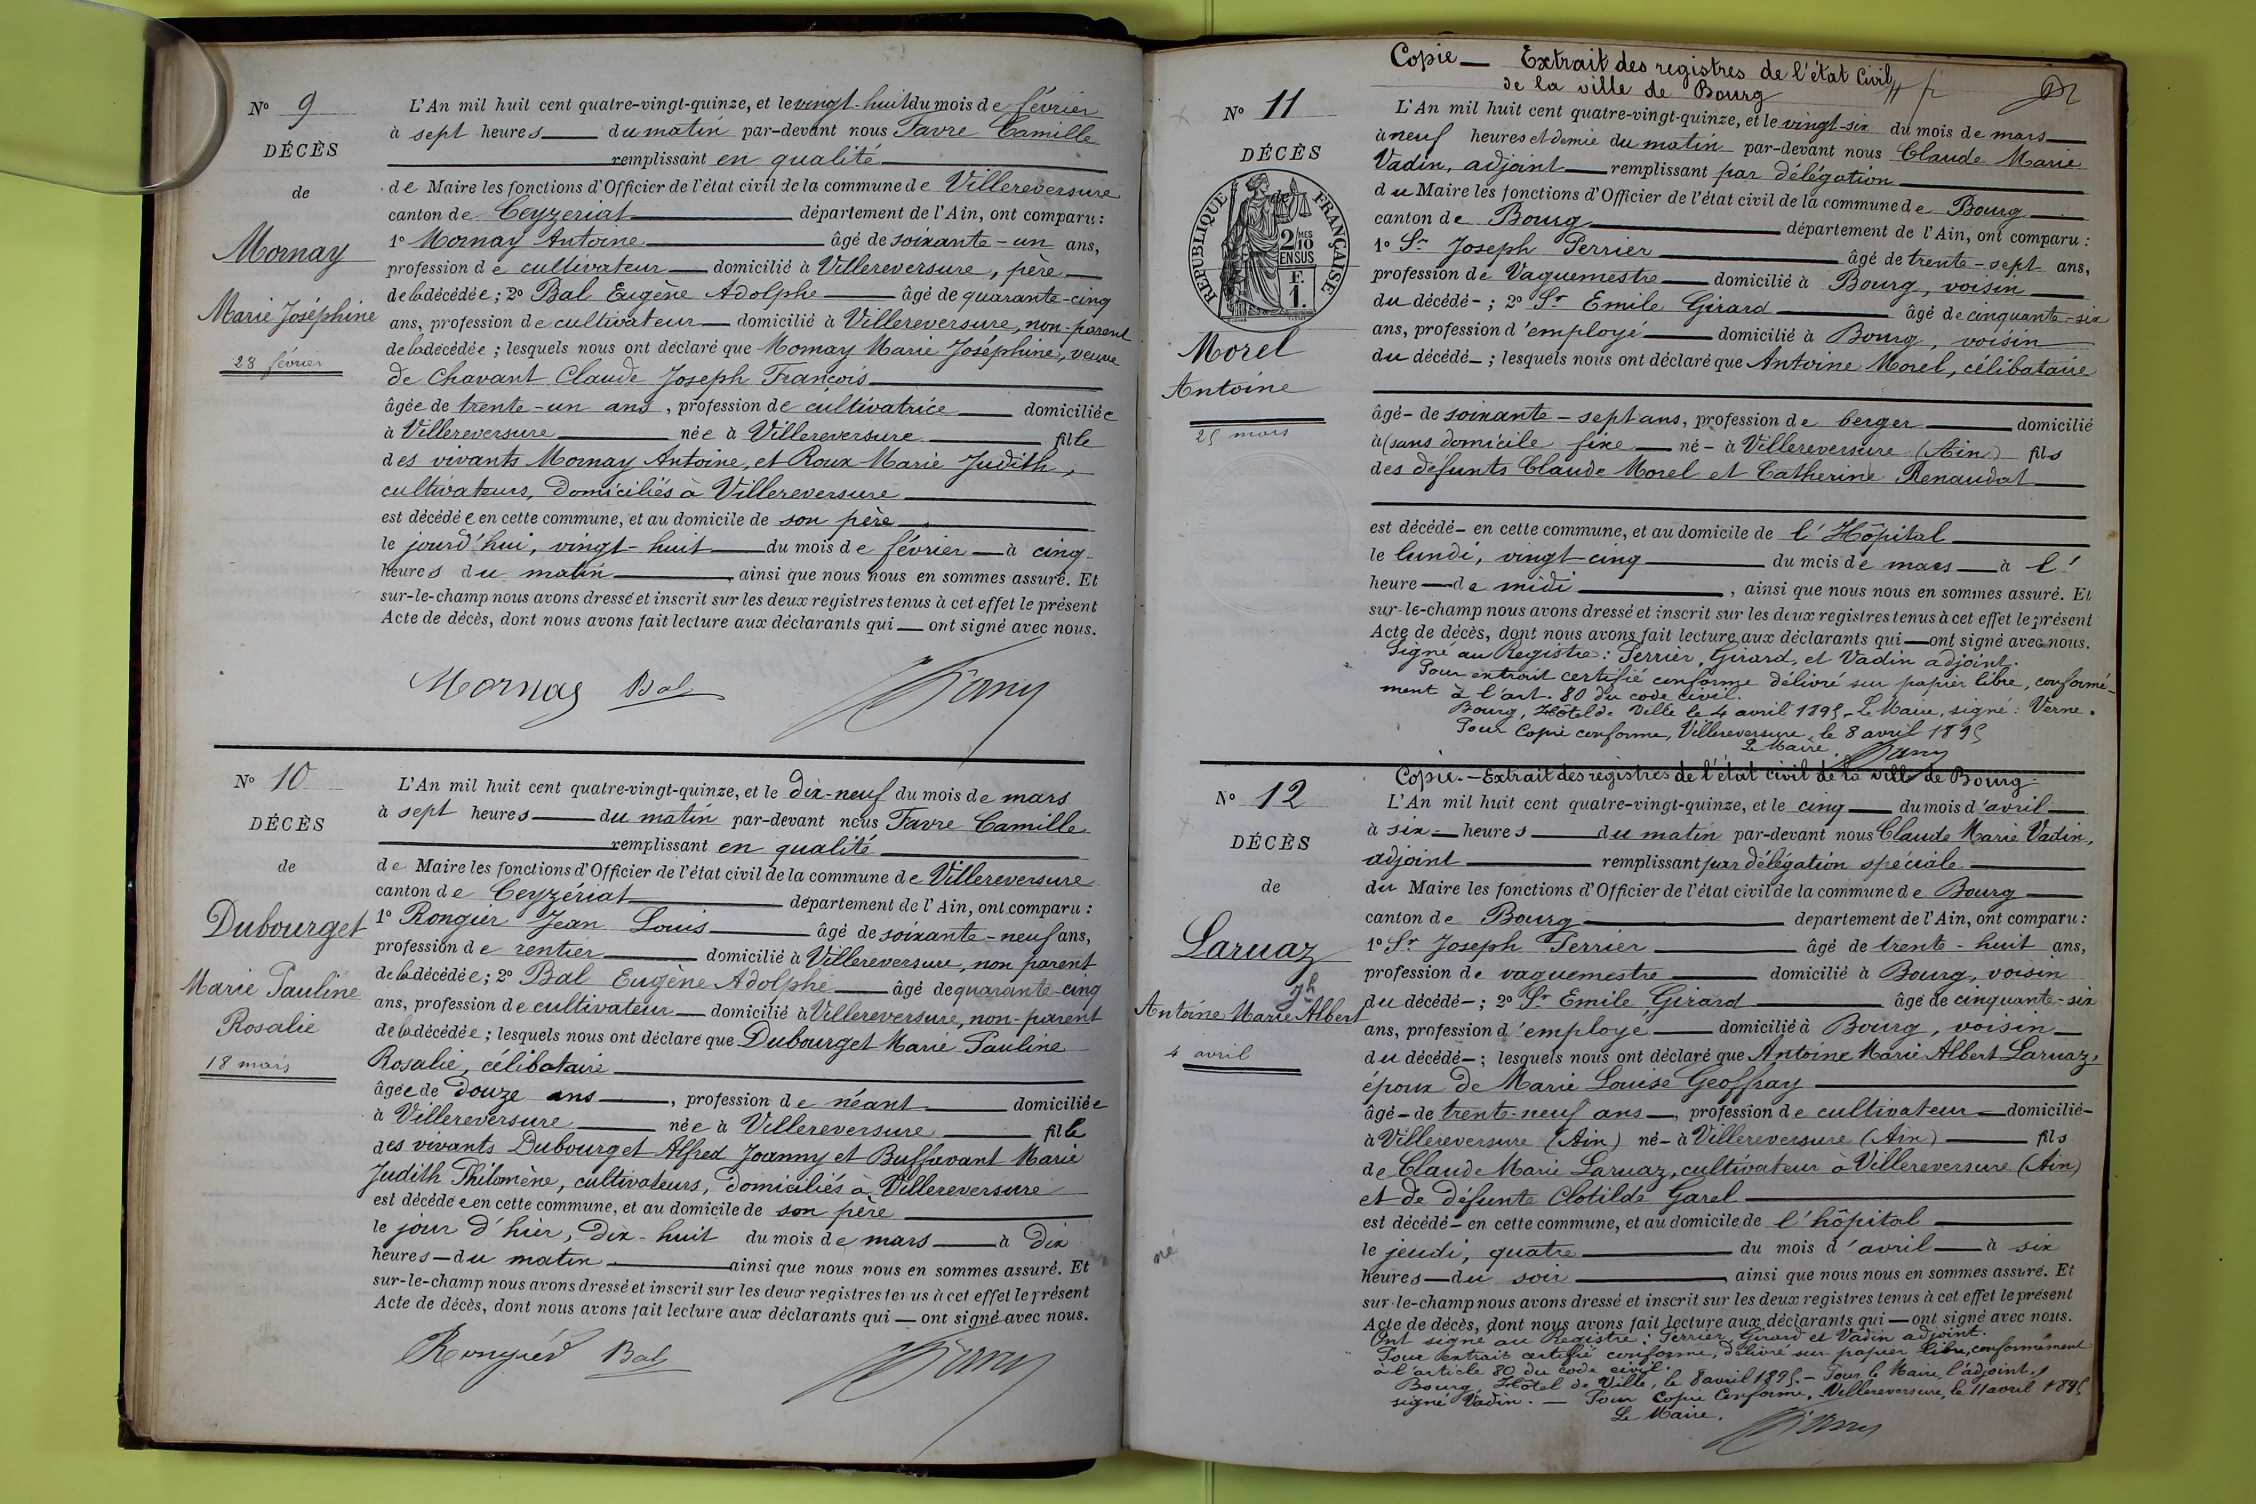 N° 9
DÉCÈS
de
Mornay
Marie Joséphine
28 février
L'An mil huit cent quatre-vingt-quinze, et le vingt-huit du mois de février
à sept heures du matin par-devant nous Favre Camille
remplissant en qualité
de Maire les fonctions d'Officier de l'état civil de la commune de Villereversure
canton de Ceyzeriat département de l'Ain, ont comparu :
1° Mornay Antoine âgé de soixante-un ans,
profession de cultivateur domicilié à Villereversure, père
de la décédée ; 2° Bal Eugène Adolphe âgé de quarante-cinq
ans, profession de cultivateur domicilié à Villereversure, non-parent
de la décédée ; lesquels nous ont déclaré que Mornay Marie Joséphine, veuve
de Chavant Claude Joseph François
âgée de trente-un ans, profession de cultivatrice domiciliée
à Villereversure née à Villereversure fille
des vivants Mornay Antoine, et Roux Marie Judith,
cultivateurs, domiciliés à Villereversure
est décédée en cette commune, et au domicile de son père
le jourd'hui, vingt-huit du mois de février à cinq
heures du matin, ainsi que nous nous en sommes assuré. Et
sur-le-champ nous avons dressé et inscrit sur les deux registres tenus à cet effet le présent
Acte de décès, dont nous avons fait lecture aux déclarants qui ont signé avec nous.
Mornay Bal
N° 10
DÉCÈS
de
Dubourget
Marie Pauline
Rosalie
18 mars
L'An mil huit cent quatre-vingt-quinze, et le dix-neuf du mois de mars
à sept heures du matin par-devant nous Favre Camille
remplissant en qualité
de Maire les fonctions d'Officier de l'état civil de la commune de Villereversure
canton de Ceyzériat département de l'Ain, ont comparu :
1° Rongier Jean Louis âgé de soixante-neuf ans,
profession de rentier domicilié à Villereversure, non parent
de la décédée ; 2° Bal Eugène Adolphe âgé de quarante-cinq
ans, profession de cultivateur domicilié à Villereversure, non-parent
de la décédée ; lesquels nous ont déclaré que Dubourget Marie Pauline
Rosalie, célibataire
âgée de douze ans, profession de néant domiciliée
à Villereversure née à Villereversure fille
des vivants Dubourget Alfred Joanny et Buffavant Marie
Judith Philomène, cultivateurs, domiciliés à Villereversure
est décédée en cette commune, et au domicile de son père
le jour d'hier, dix-huit du mois de mars à dix
heures du matin ainsi que nous nous en sommes assuré. Et
sur-le-champ nous avons dressé et inscrit sur les deux registres tenus à cet effet le présent
Acte de décès, dont nous avons fait lecture aux déclarants qui ont signé avec nous.
Bal
Copie — Extrait des registres de l'état civil
de la ville de Bourg
N° 11
DÉCÈS
de
RÉPUBLIQUE FRANÇAISE
2/10 MES
EN SUS
F.
1.
Morel
Antoine
25 mars
L'An mil huit cent quatre-vingt-quinze, et le vingt-six du mois de mars
à neuf heures et demie du matin par-devant nous Claude Marie
Vadin, adjoint remplissant par délégation
du Maire les fonctions d'Officier de l'état civil de la commune de Bourg
canton de Bourg département de l'Ain, ont comparu :
1° Sr Joseph Perrier âgé de trente-sept ans,
profession de Vaguemestre domicilié à Bourg, voisin
du décédé - ; 2° Sr Emile Girard âgé de cinquante-six
ans, profession d'employé domicilié à Bourg, voisin
du décédé - ; lesquels nous ont déclaré que Antoine Morel, célibataire
âgé - de soixante-sept ans, profession de berger domicilié
à (sans domicile fixe né - à Villereversure (Ain) fils
des défunts Claude Morel et Catherine Renaudat
est décédé - en cette commune, et au domicile de l'Hôpital
le lundi, vingt-cinq du mois de mars à l'
heure de midi, ainsi que nous nous en sommes assuré. Et
sur-le-champ nous avons dressé et inscrit sur les deux registres tenus à cet effet le présent
Acte de décès, dont nous avons fait lecture aux déclarants qui ont signé avec nous.
Signé au Registre : Perrier, Girard, et Vadin adjoint.
Pour extrait certifié conforme délivré sur papier libre, conformé-
ment à l'art. 80 du code civil.
Bourg, Hôtel de Ville le 4 avril 1895 - Le Maire, signé : Verne.
Pour Copie conforme, Villereversure, le 8 avril 1895
Le Maire.
Copie. — Extrait des registres de l'état civil de la ville de Bourg.
N° 12
DÉCÈS
de
Laruaz
Jh
Antoine Marie Albert
4 avril
né
L'An mil huit cent quatre-vingt-quinze, et le cinq du mois d'avril
à six heures du matin par-devant nous Claude Marie Vadin,
adjoint remplissant par délégation spéciale
du Maire les fonctions d'Officier de l'état civil de la commune de Bourg
canton de Bourg département de l'Ain, ont comparu :
1° Sr Joseph Perrier âgé de trente-huit ans,
profession de vaguemestre domicilié à Bourg, voisin
du décédé - ; 2° Sr Emile Girard âgé de cinquante-six
ans, profession d'employé domicilié à Bourg, voisin
du décédé - ; lesquels nous ont déclaré que Antoine Marie Albert Laruaz,
époux de Marie Louise Geoffray
âgé - de trente-neuf ans, profession de cultivateur domicilié -
à Villereversure (Ain) né - à Villereversure (Ain) fils
de Claude Marie Laruaz, cultivateur à Villereversure (Ain)
et de défunte Clotilde Garel
est décédé - en cette commune, et au domicile de l'hôpital
le jeudi, quatre du mois d'avril à six
heures du soir, ainsi que nous nous en sommes assuré. Et
sur-le-champ nous avons dressé et inscrit sur les deux registres tenus à cet effet le présent
Acte de décès, dont nous avons fait lecture aux déclarants qui ont signé avec nous.
Ont signé au Registre : Perrier, Girard et Vadin adjoint.
Pour extrait certifié conforme, délivré sur papier libre, conformément
à l'article 80 du code civil.
Bourg, Hôtel de Ville, le 8 avril 1895. - Pour le Maire, l'adjoint,
signé Vadin. — Pour Copie Conforme, Villereversure, le 11 avril 1895
Le Maire.